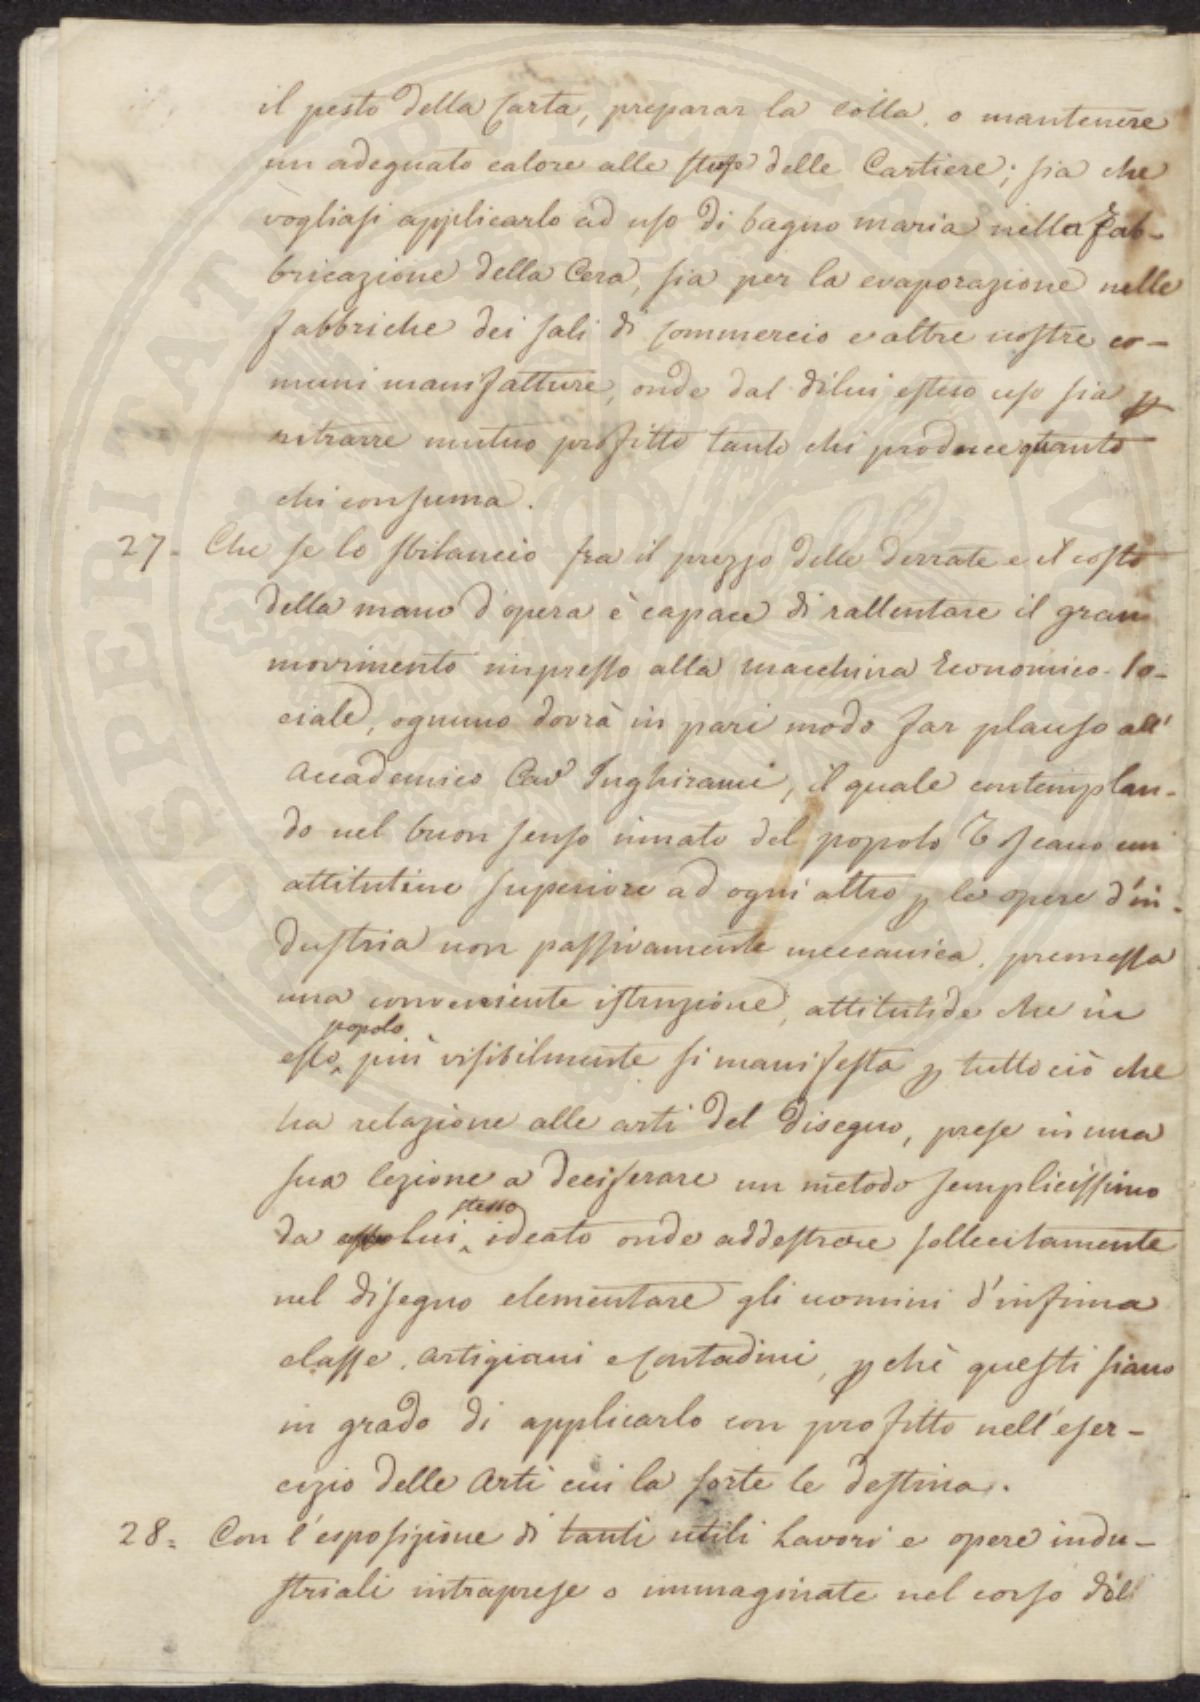 il pesto della Carta, preparar la Colla, o mantenere
un adeguato calore alle stufe delle Cartiere; sia che
vogliasi applicarlo ad uso di bagno maria nella fab-
bricazione della Cera, sia per la evaporazione nelle
fabbriche dei sali di Commercio e altre nostre co-
muni manifatture, onde dal dilui esteso uso sia p
ritrarre mutuo profitto tanto chi produce quanto
chi consuma.
27. Che se lo sbilancio fra il prezzo delle derrate e il costo
della mano d'opera è capace di rallentare il gran
movimento impresso alla macchina Economico-So-
ciale, ognuno dovrà in pari modo far plauso all'
Accademico Cav.e Inghirami, il quale contemplan-
do nel buon senso innato del popolo Toscano un
attitutine superiore ad ogni altro p le opere d'in-
dustria non passivamente meccanica, premessa
una conveniente istruzione, attitutide che in
popolo
esso, più visibilmente si manifesta p tutto ciò che
ha relazione alle arti del Disegno, prese in una
sua lezione a deciferare un metodo semplicissimo
stesso
da lui ideato onde addestrare sollecitamente
nel disegno elementare gli uomini d'infima
classe, artigiani e Contadini, p chè questi siano
in grado di applicarlo con profitto nell'eser-
cizio delle Arti cui la sorte le destina.
28. Con l'esposizione di tanti utili Lavori e opere indu-
striali intraprese o immaginate nel corso del